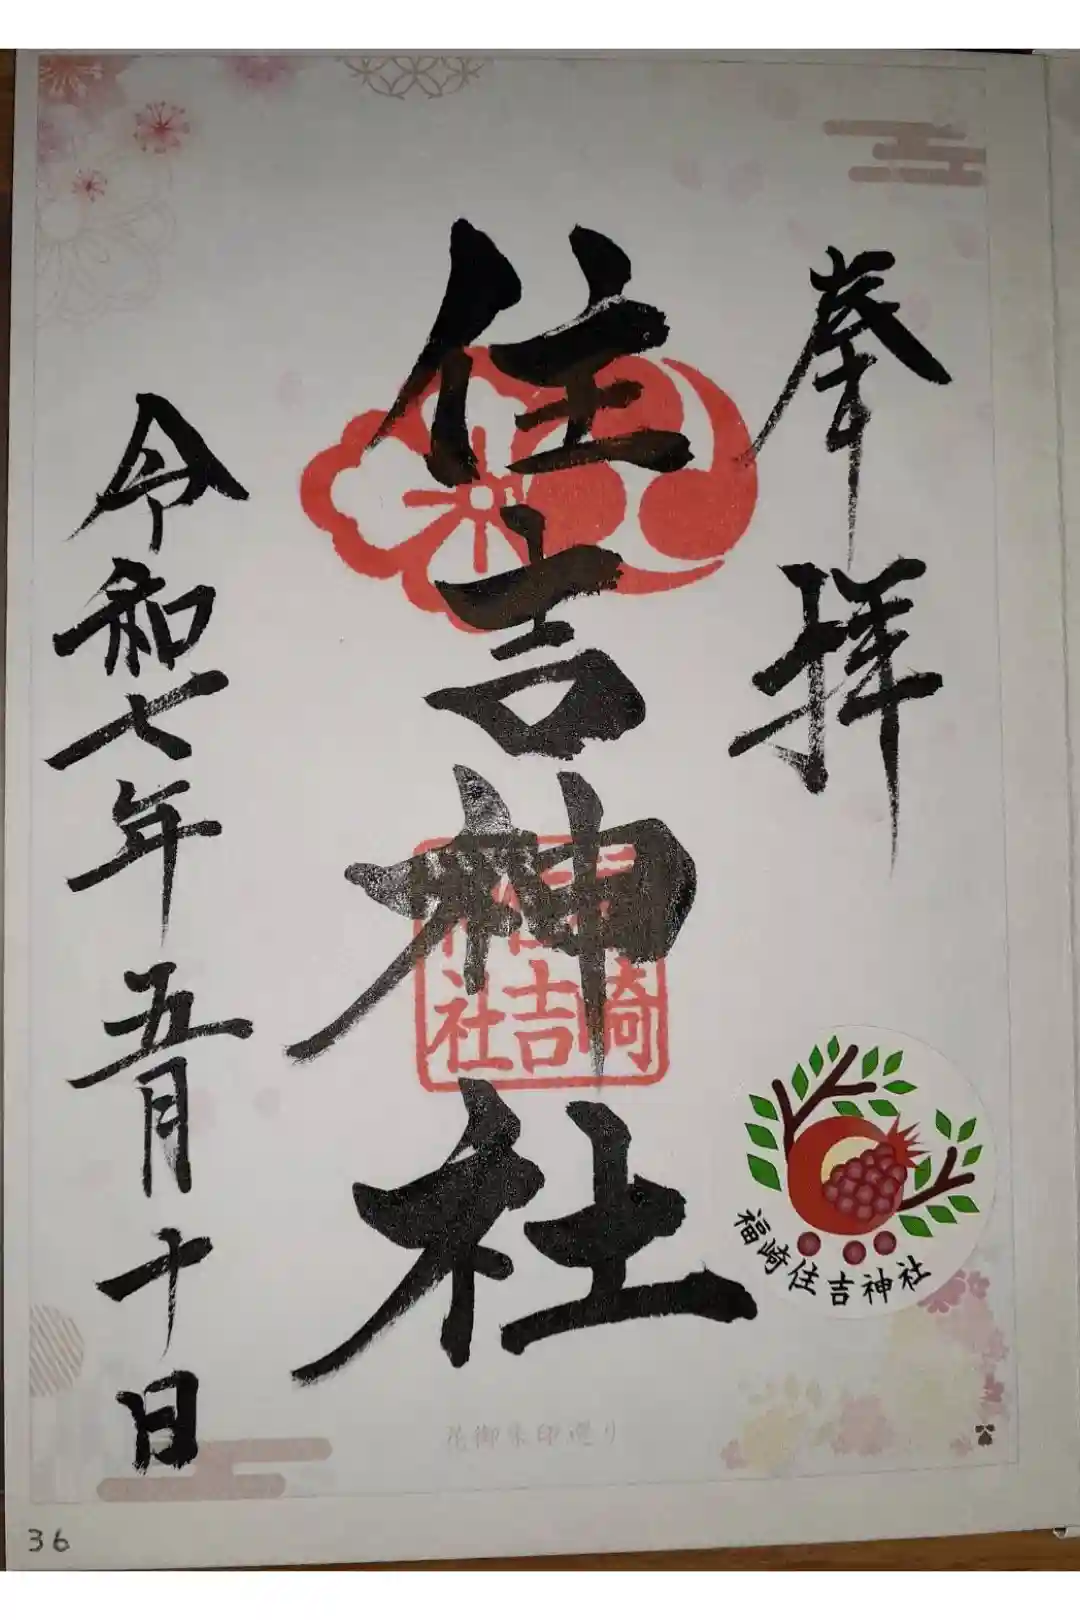 奉拝
住吉神社
崎
吉
社
令和七年五月十日
福崎住吉神社
花御朱印巡り
36